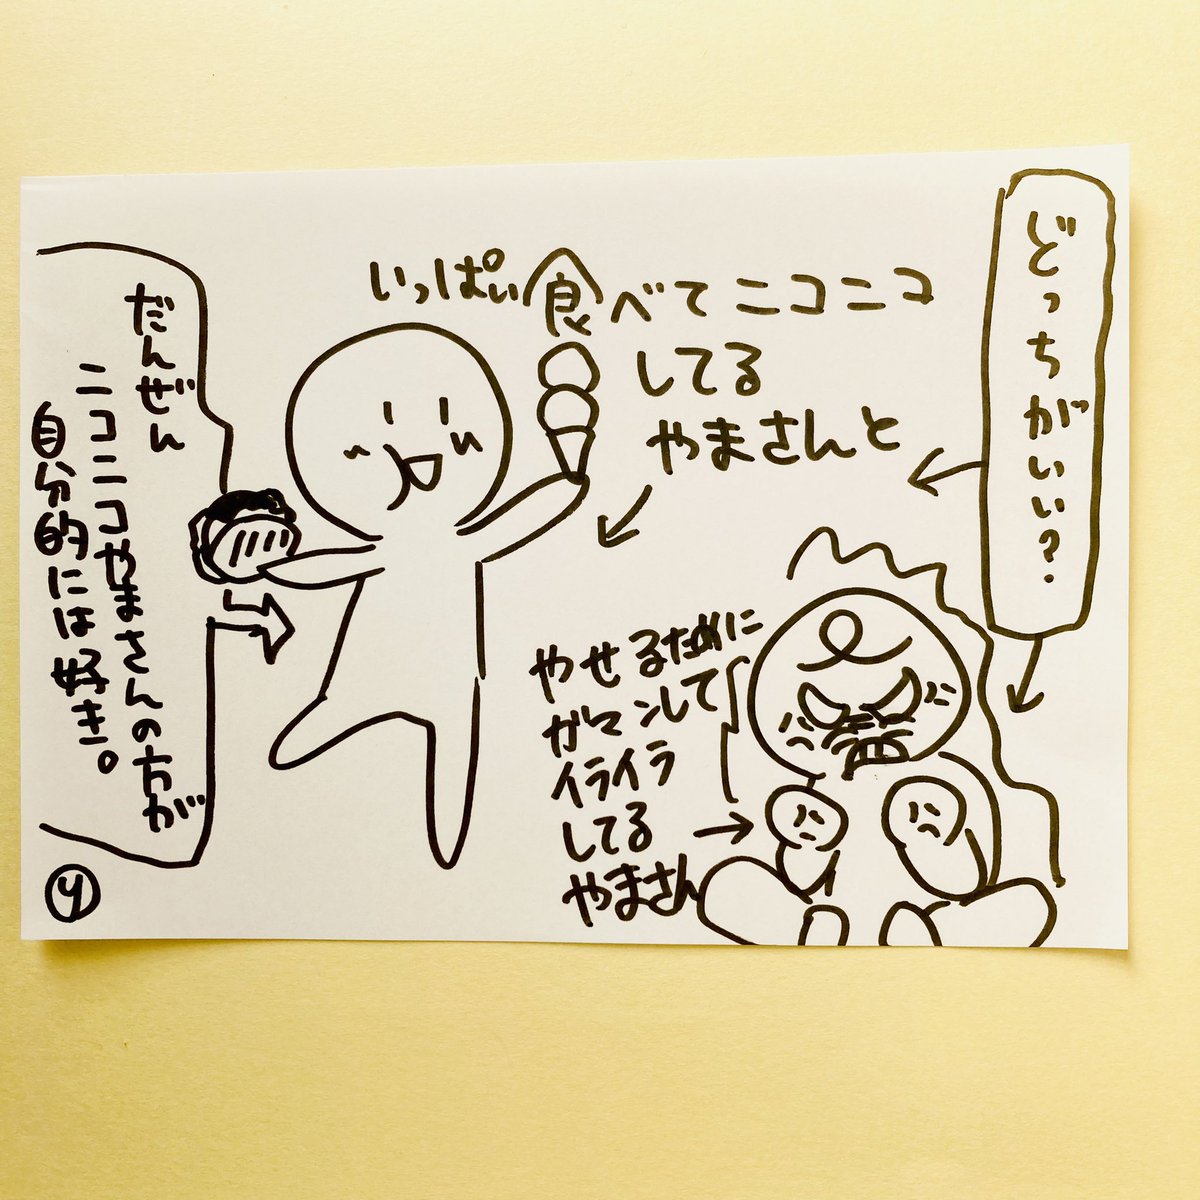 どっちがいい?
いっぱい食べてニコニコ
してる
やまさんと
やせるために
ガマンして
イライラ
してる
やまさん
だんぜん
ニコニコやまさんの方が
自分的には好き。